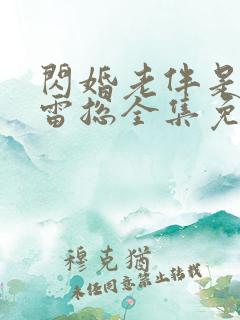 閃婚老伴是
雷總全集免
穆克猶
未经同意禁止转载